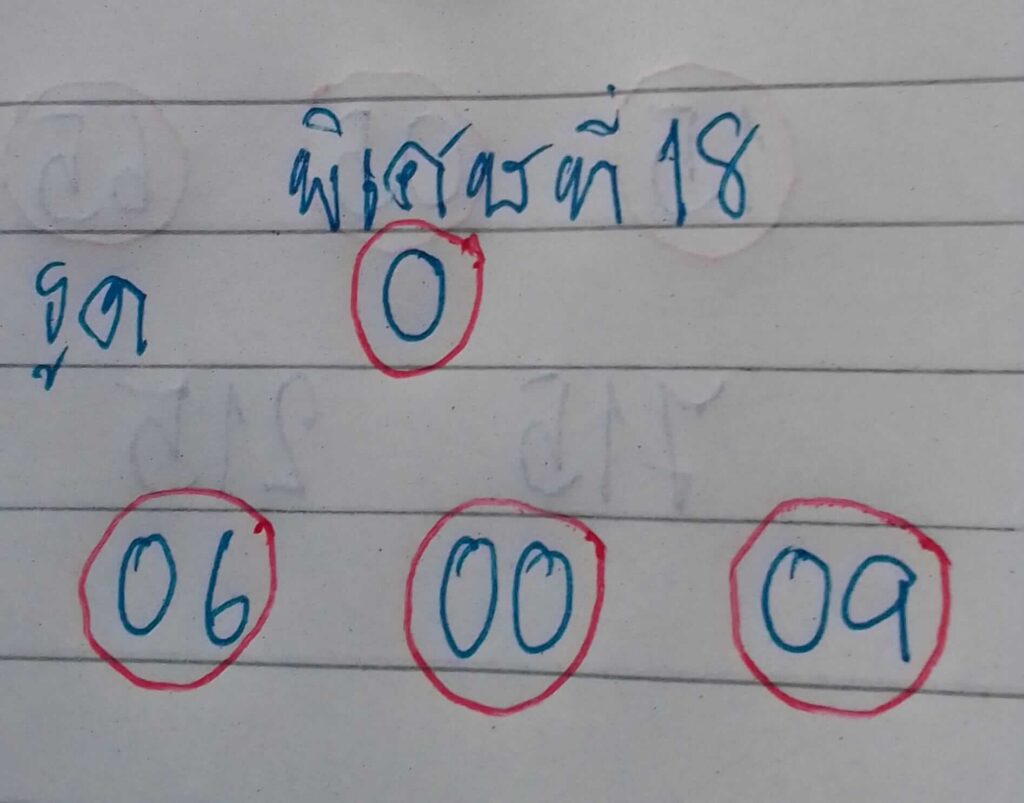 พิเศษที่ 18
รูด 0
06 00 09